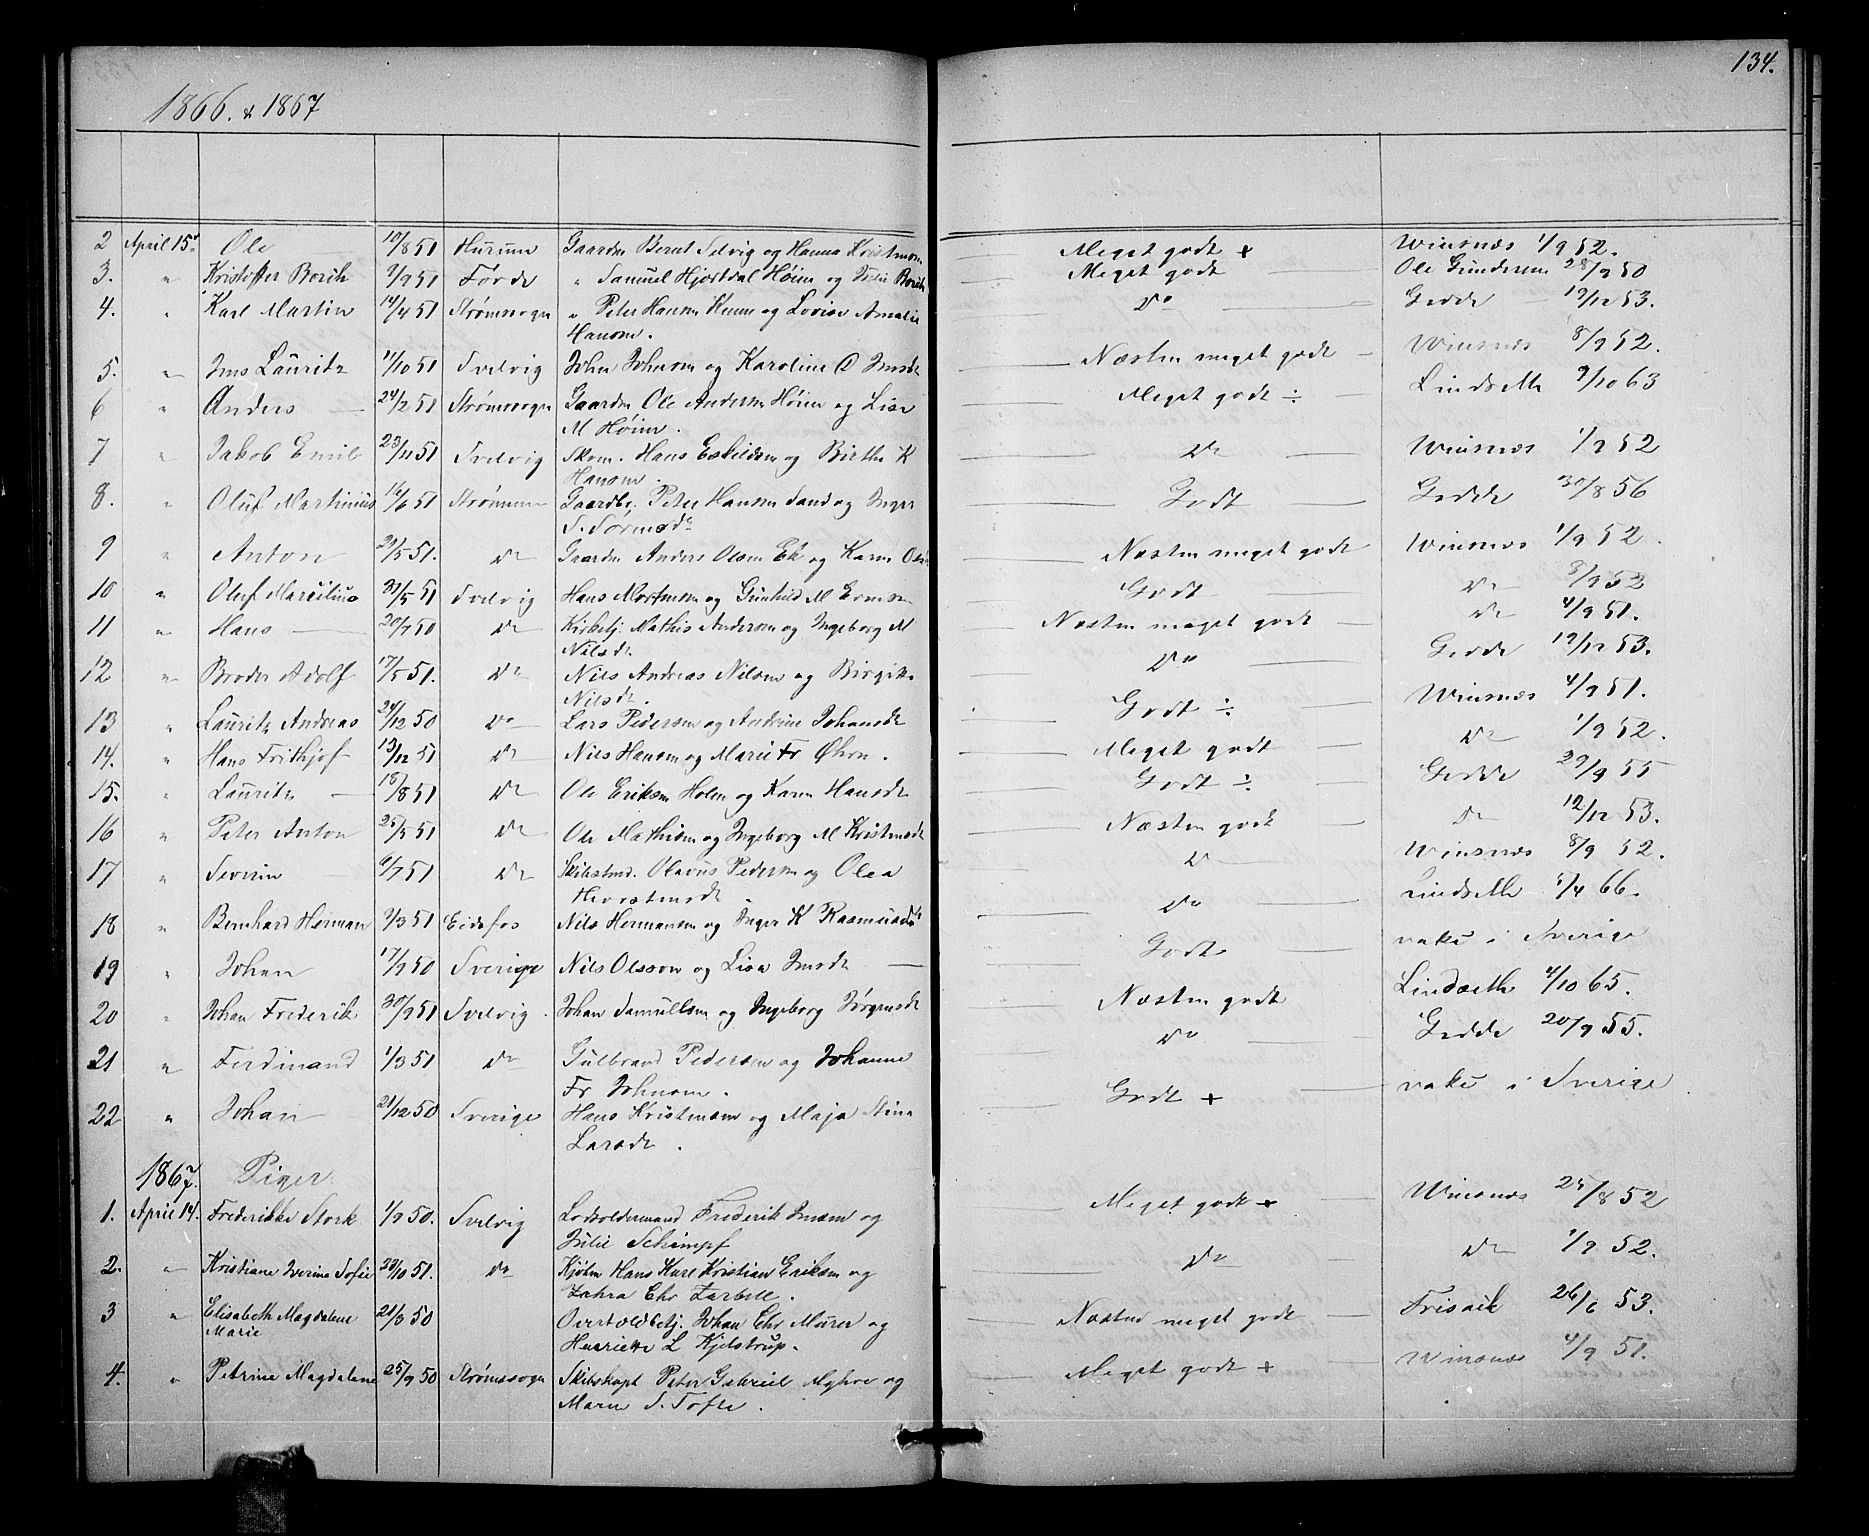 134.
1866. & 1867
2 April 15. Ole 10/8 51 Hurum Gaardm Bernt Selvig og Hanna Kristensen Meget godt + Winsnæs 1/9 52.
3. " Kristoffer Borch 9/9 51 Førde " Samuel Hjortdal Høien og Julie Borch Meget godt Ole Gundersen 28/9 50
4. " Karl Martin 14/4 51 Strømsogn " Peter Hansen og Lovise Amalie Do Gedde 19/12 53.
Hansen.
5. " Jens Lauritz 11/10 51 Svelvig John Johnsen og Karoline O Jensdt Næsten meget godt Winsnæs 8/9 52.
6 " Anders 24/2 51 Strømssogn Gaardm Ole Andersen Høien og Lise Meget godt ÷ Lindseth 9/10 63
M Høien.
7 " Jakob Emil 23/11 51 Svelvig Skom. Hans Eskildsen og Birthe K Do Winsnæs 1/9 52
Hansen.
8. " Oluf Martinius 16/6 51 Strømmen Gaardbr. Peter Hansen Sand og Inger Godt Gedde 30/8 56
S.
9 " Anton 21/5 51. Do Gaardm Anders Olsen Ek og Karen Næsten meget godt Winsnæs 1/9 52.
10 " Oluf Marcilius 31/5 51 Svelvig Hans Mortensen og Gunhild M Godt Do 8/9 52
11 " Hans 20/7 50 Do Kirketj. Mathis Andersen og Ingeborg M Næsten meget godt Do 4/9 51.
Nilsdt.
12 " Broder Adolf 17/5 51. Do Nils Andreas Nilsen og Birgitte Do Gedde 19/12 53.
Nilsdt.
13 " Lauritz Andreas 24/12 50 Do Lars Pedersen og Andrine Johansdt Godt ÷ Winsnæs 4/9 51.
14. " Hans Frithjof 13/12 51 Do Nils Hansen og Marie Fr Øhrn. Meget godt Do 1/9 52.
15. " Lauritz 18/8 51 Do Ole Eriksen Holm og Karen Hansdt Godt ÷ Gedde 29/9 55
16 " Peter Anton 25/5 51 Do Ole Mathisen og Ingeborg M Kristensdt Næsten godt Do 12/12 53.
17 " Severin 6/7 51 Do Skibstmd. Olavus Pedersen og Olea Do Winsnæs 8/9 52.
18 " Bernhard Herman 9/3 51 Eidsfos Nils Hermansen og Inger K Rasmusdt Do Lindseth 1/4 66.
19 " Johan 17/9 50 Sverige Nils Olsson og Lisa Jensdt Godt vake i Sverige
20 " Johan Frederik 30/9 51 Svelvig. Johan Samuelsen og Ingeborg Jørgensdt Næsten godt Lindseth 4/10 65.
21 " Ferdinand 1/3 51 Do Gulbrand Pedersen og Johanne Do Gedde 20/9 55.
Fr Johnsen.
22 " Johan 21/12 50 Sverige Hans Kristensen og Maja Stina Godt + vake i Sverige
Larsdt.
1867. Piger
1. April 14. Frederikke Stork 1/9 50. Svelvig Lodsoldermand Frederik Jensen og Meget godt + Winsnæs 25/8 52
Julie Schimpf
2. " Kristiane Iverine Sofie 29/10 51. Do Kjøbm Hans Karl Kristian Eriksen og Do Do 1/9 52.
Zahra Chr
3 " Elisabeth Magdalene 21/8 50 Overtoldbetj. Johan Chr Meier og Næsten meget godt Frisak 26/6 53.
Marie Henriette L Kjelstrup.
4. " Petrine Magdalene 25/9 50 Strømssogn Skibskapt Peter Gabriel Myhre og Meget godt + Winsnæs 4/9 51.
Maren S. Tofte.